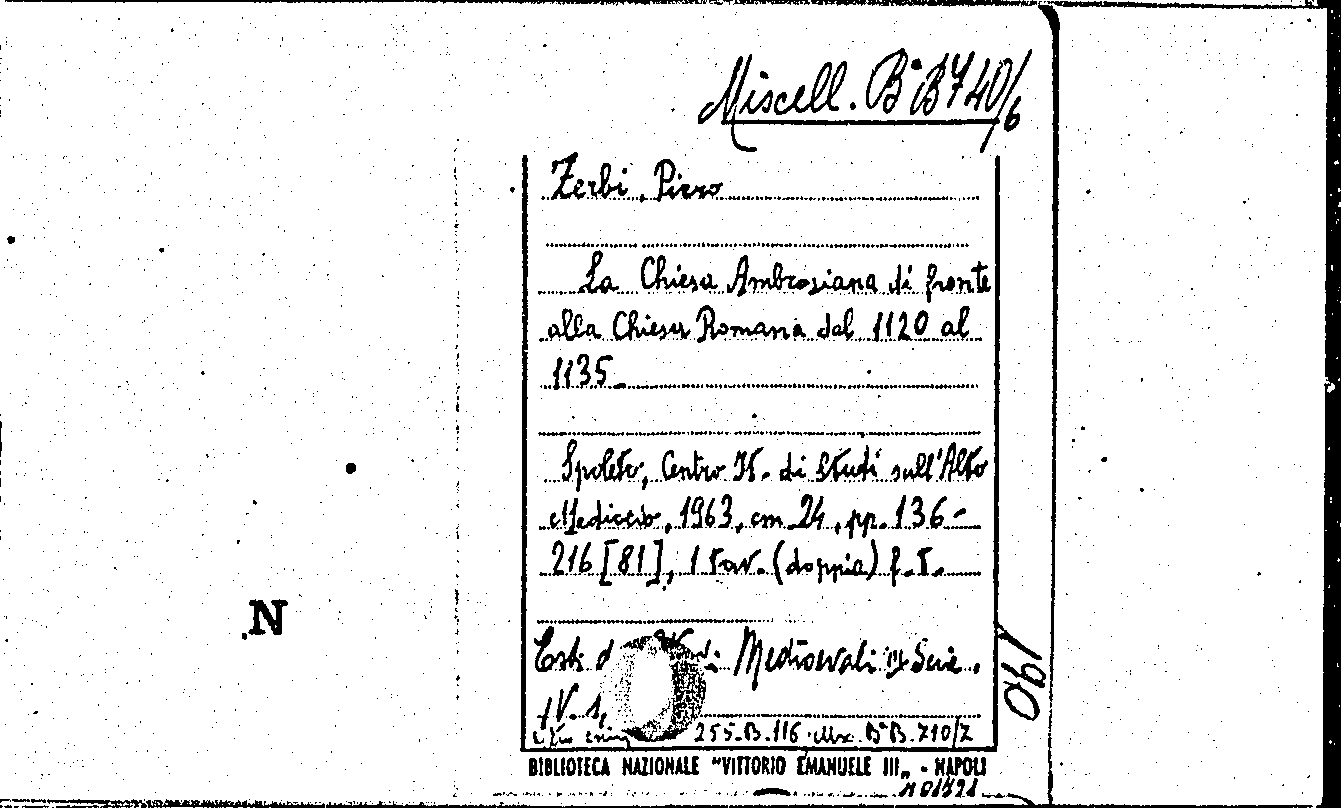 Miscell. B.a B 740/6
Zerbi, Piero
La Chiesa Ambrosiana di fronte
alla Chiesa Romana dal 1120 al
1135.
Spoleto, Centro It. di Studi sull'Alto
Medioevo, 1963, cm. 24, pp. 136-
216 [81], 1 tav. (doppia) f.t.
N
190
Estr. d Studi Medioevali III Serie,
IV. 1,
255.B.116. Misc. B.a B. 710/7
BIBLIOTECA NAZIONALE "VITTORIO EMANUELE III„ - NAPOLI